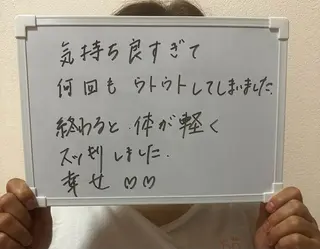 気持ち良すぎて
何回も ウトウトしてしまいました.
終わると 体が軽く
スッキリしました.
幸せ ♡♡